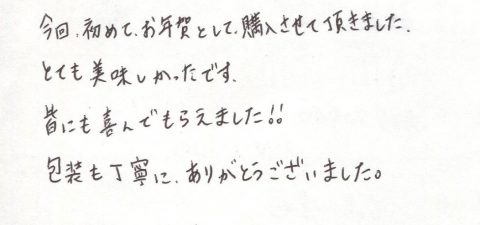 今回、初めて、お年賀として、購入させて頂きました.
とても美味しかったです.
皆にも喜んでもらえました!!
包装も丁寧に、ありがとうございました。